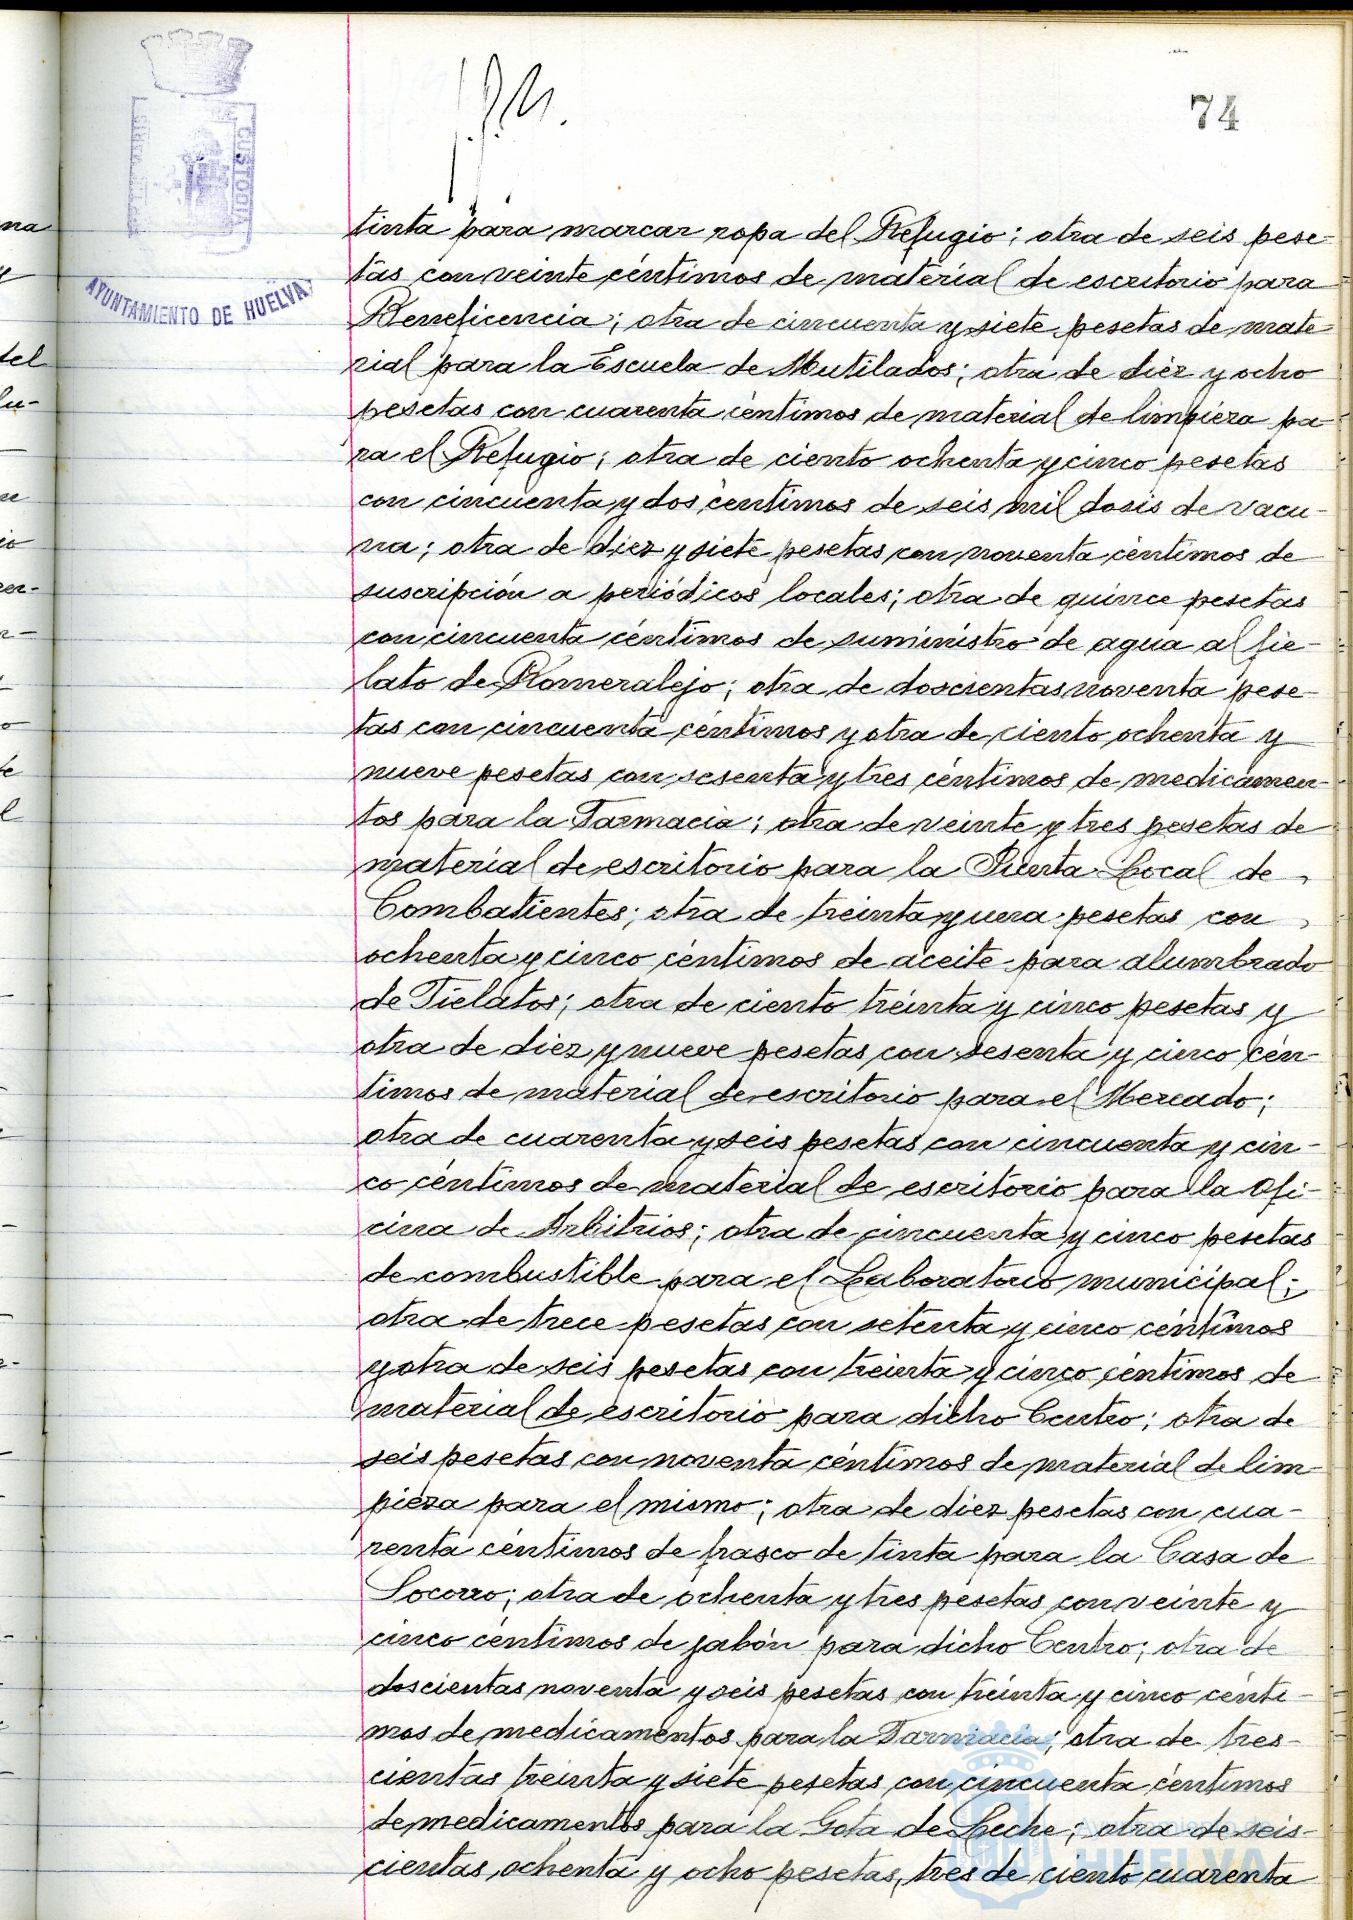 74
CUSTODIA
AYUNTAMIENTO DE HUELVA
tinta para marcar ropa del Refugio; otra de seis pese-
tas con veinte céntimos de material de escritorio para
Beneficencia; otra de cincuenta y siete pesetas de mate-
rial para la Escuela de Mutilados; otra de diez y ocho
pesetas con cuarenta céntimos de material de limpieza pa-
ra el Refugio; otra de ciento ochenta y cinco pesetas
con cincuenta y dos céntimos de seis mil dosis de vacu-
na; otra de diez y siete pesetas con noventa céntimos de
suscripción a periódicos locales; otra de quince pesetas
con cincuenta céntimos de suministro de agua al fie-
lato de Romeralejo; otra de doscientas noventa pese-
tas con cincuenta céntimos y otra de ciento ochenta y
nueve pesetas con sesenta y tres céntimos de medicamen-
tos para la Farmacia; otra de veinte y tres pesetas de
material de escritorio para la Junta Local de
Combatientes; otra de treinta y una pesetas con
ochenta y cinco céntimos de aceite para alumbrado
de Fielatos; otra de ciento treinta y cinco pesetas y
otra de diez y nueve pesetas con sesenta y cinco cén-
timos de material de escritorio para el Mercado;
otra de cuarenta y seis pesetas con cincuenta y cin-
co céntimos de material de escritorio para la Ofi-
cina de Arbitrios; otra de cincuenta y cinco pesetas
de combustible para el Laboratorio municipal;
otra de trece pesetas con setenta y cinco céntimos
y otra de seis pesetas con treinta y cinco céntimos de
material de escritorio para dicho Centro; otra de
seis pesetas con noventa céntimos de material de lim-
pieza para el mismo; otra de diez pesetas con cua-
renta céntimos de frasco de tinta para la Casa de
Socorro; otra de ochenta y tres pesetas con veinte y
cinco céntimos de jabón para dicho Centro; otra de
doscientas noventa y seis pesetas con treinta y cinco cénti-
mos de medicamentos para la Farmacia; otra de tres-
cientas treinta y siete pesetas con cincuenta céntimos
de medicamentos para la Gota de Leche; otra de seis-
cientas ochenta y ocho pesetas, tres de ciento cuarenta
HUELVA